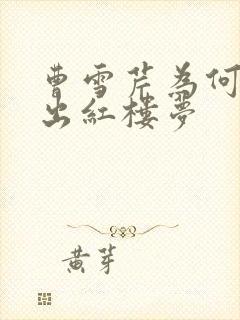 曹雪芹為何
出紅樓夢
黃芽